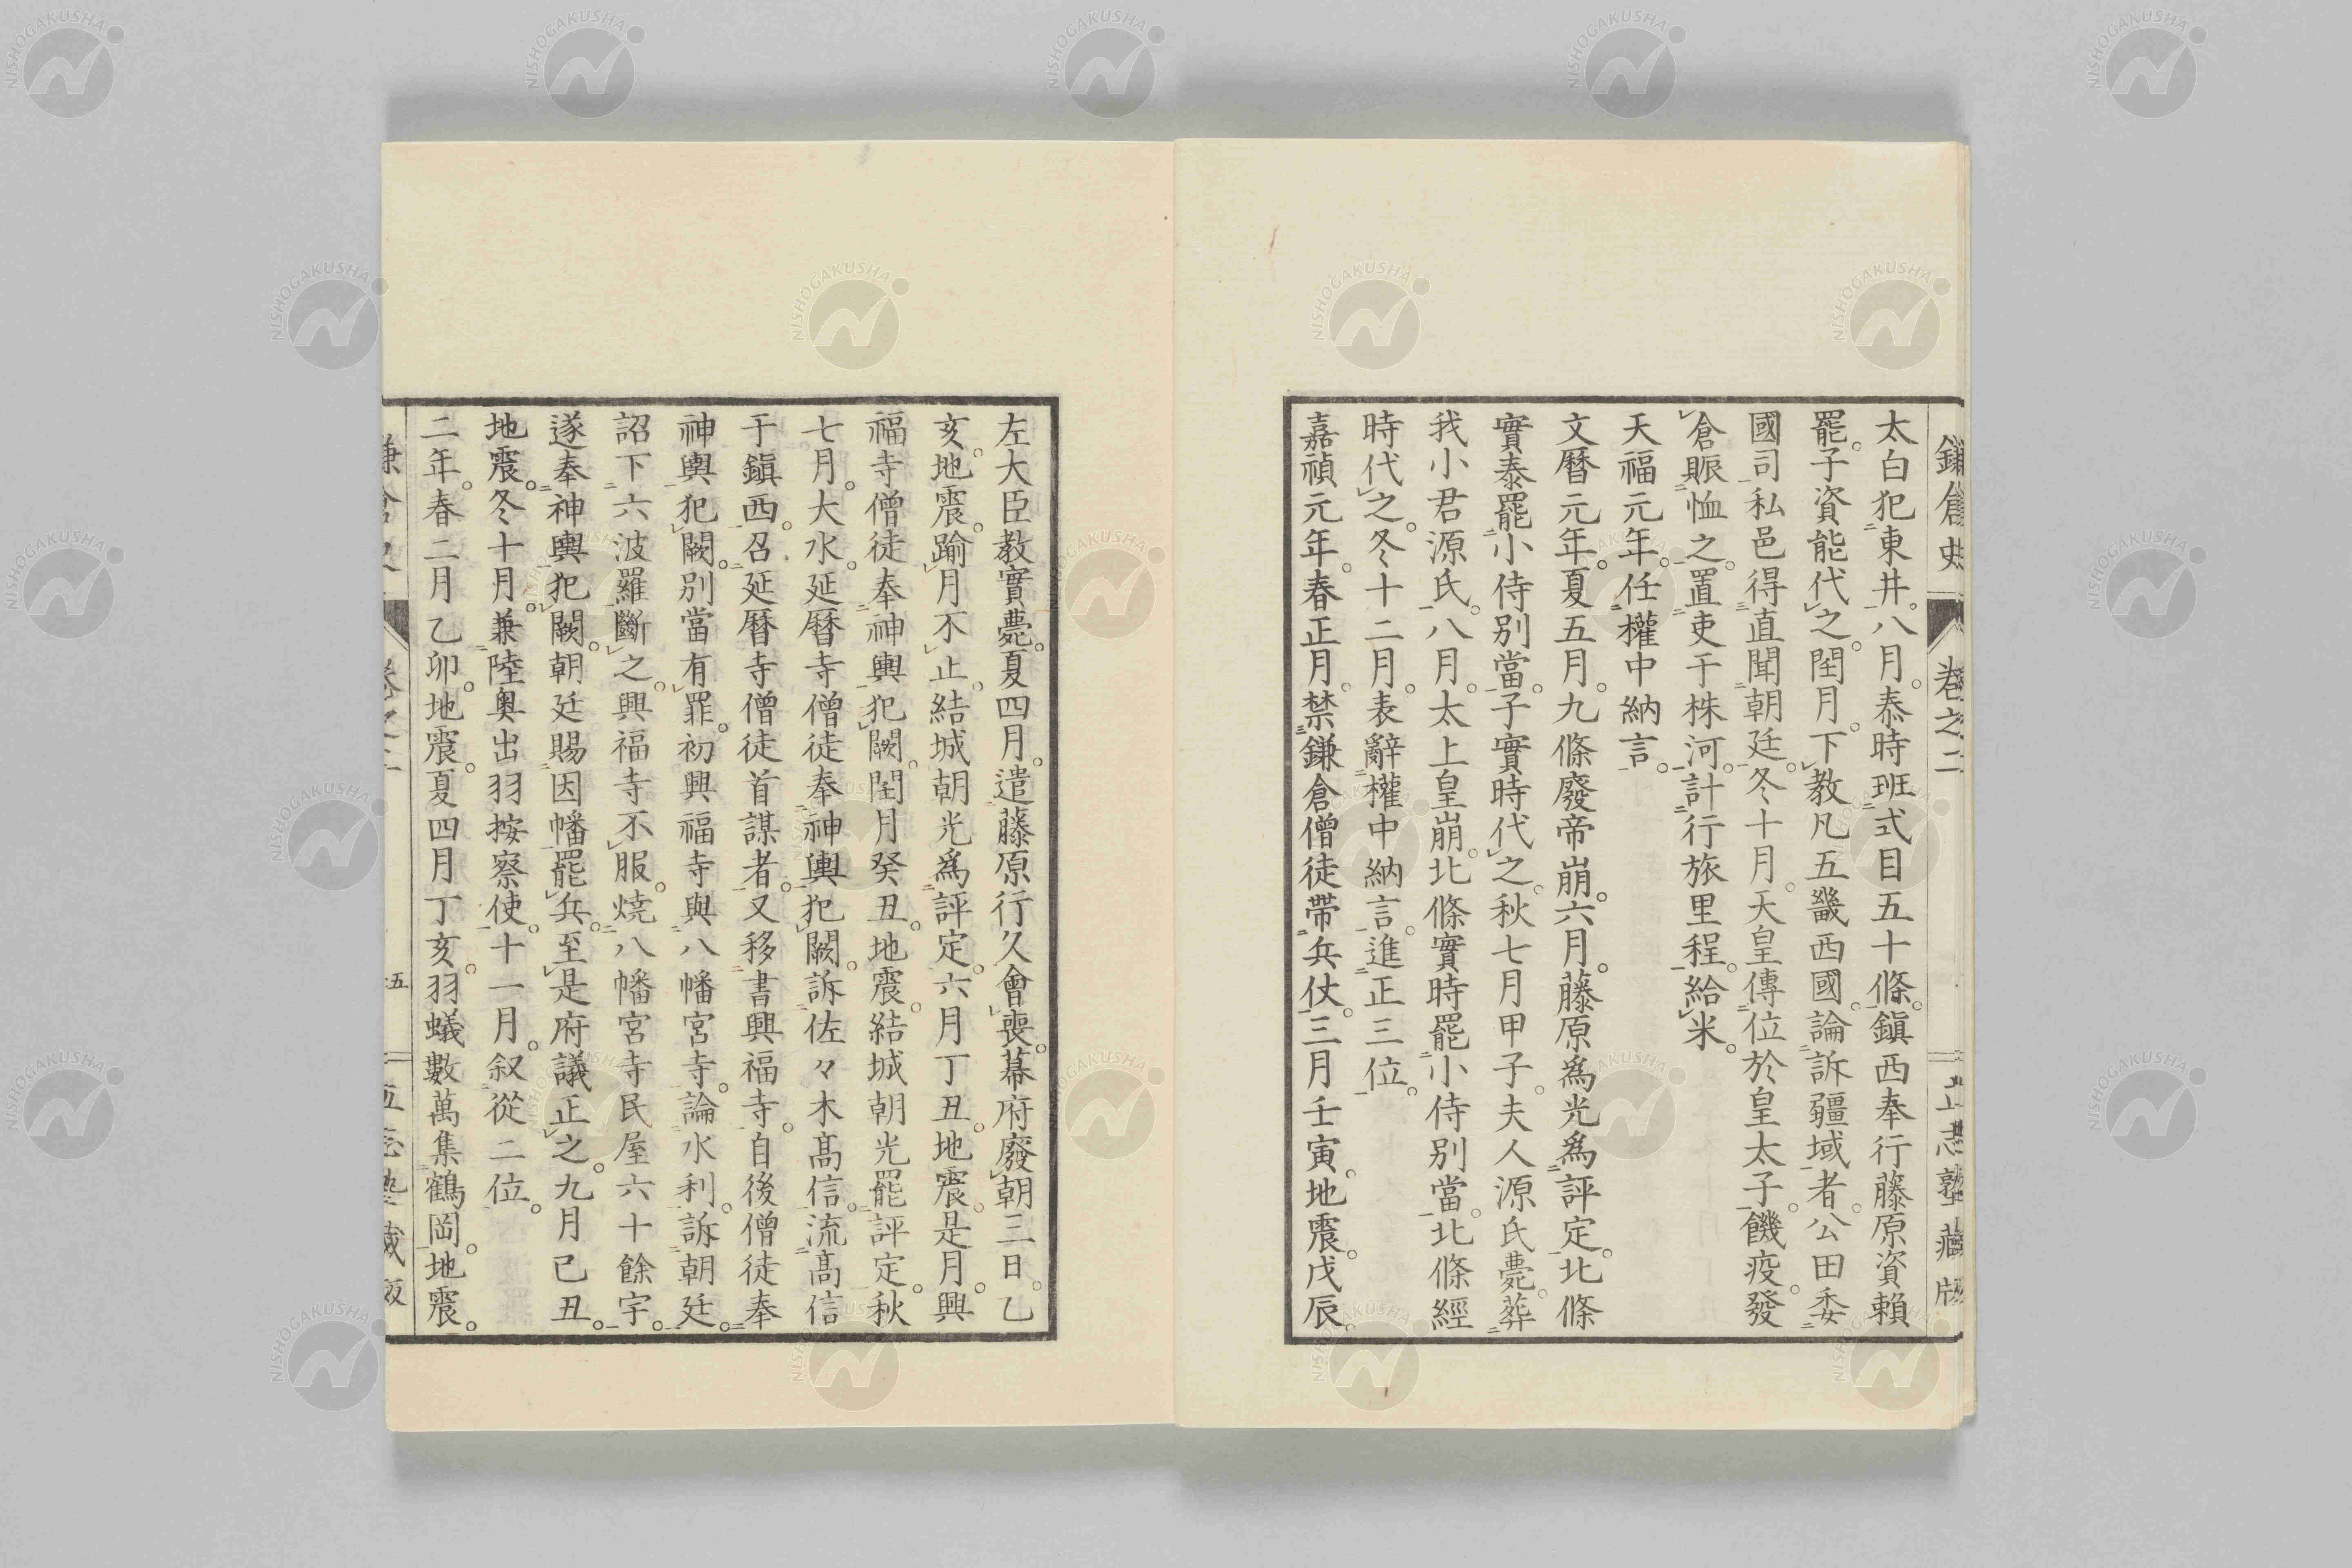 鎌倉史 卷之二 止志塾藏版
太白犯東井。八月。泰時班式目五十條。鎭西奉行藤原資賴
罷。子資能代之。閏月。下教凡五畿西國。論訴疆域者。公田委
國司私邑得直聞朝廷。冬十月。天皇傳位於皇太子。饑疫。發
倉賑恤之。置吏于株河。計行旅里程。給米。
天福元年。任權中納言。
文曆元年。夏五月。九條廢帝崩。六月。藤原爲光爲評定。北條
實泰罷小侍別當。子實時代之。秋七月甲子。夫人源氏薨。葬
我小君源氏。八月。太上皇崩。北條實時罷小侍別當。北條經
時代之。冬十二月。表辭權中納言。進正三位。
嘉禎元年。春正月。禁鎌倉僧徒帶兵仗。三月壬寅。地震。戊辰。
左大臣教實薨。夏四月。遣藤原行久會喪。幕府廢朝三日。乙
亥。地震。踰月不止。結城朝光爲評定。六月丁丑。地震。是月。興
福寺僧徒奉神輿犯闕。閏月癸丑。地震。結城朝光罷評定。秋
七月。大水。延曆寺僧徒奉神輿犯闕。訴佐々木高信。流高信
于鎭西。召延曆寺僧徒首謀者。又移書興福寺。自後僧徒奉
神輿犯闕。別當有罪。初興福寺與八幡宮寺。論水利。訴朝廷。
詔下六波羅斷之。興福寺不服。燒八幡宮寺民屋六十餘宇。
遂奉神輿犯闕。朝廷賜因幡罷兵。至是府議正之。九月己丑。
地震。冬十月。兼陸奧出羽按察使。十一月。叙從二位。
二年。春二月乙卯。地震。夏四月丁亥。羽蟻數萬集鶴岡。地震。
五
NISHOGAKUSHA